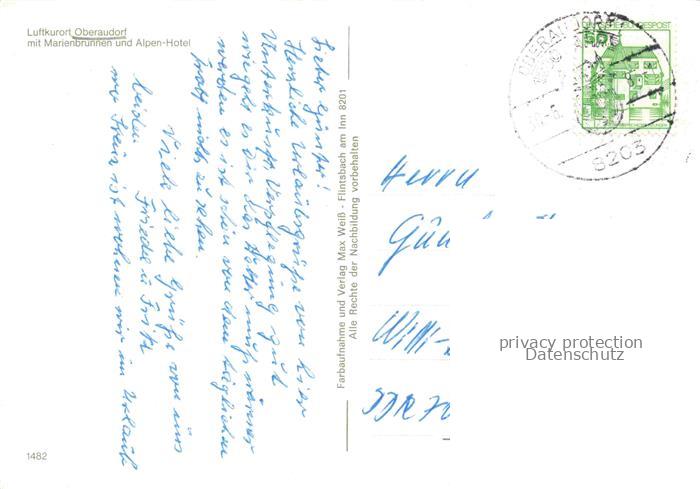 Luftkurort Oberaudorf
mit Marienbrunnen und Alpen-Hotel
Lieber Günter!
Herzliche Urlaubsgrüße von hier
Unterkunft Verpflegung gut
wie geht es Dir das Wetter muß wärmer
werden es ist schön von dem täglichen
nichts zu sehen.
Viele liebe Grüße von uns
beiden Frieda u. Fritz
ist wohnen wir im Urlaub
1482
Farbaufnahme und Verlag Max Weiß - Flintsbach am Inn 8201
Alle Rechte der Nachbildung vorbehalten
OBERAUDORF
8203
DEUTSCHE BUNDESPOST
50
Herrn
Gün
Willi-
DDR 70
privacy protection
Datenschutz